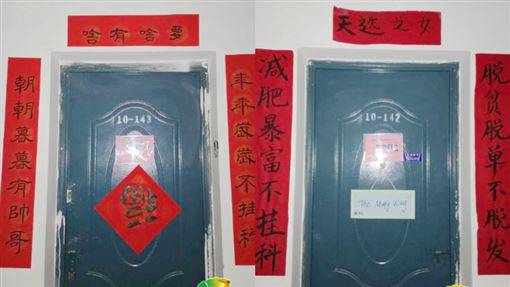 要啥有啥
年年歲歲不挂科
朝朝暮暮有帥哥
10-143
福
天选之女
减肥暴富不挂科
脱贫脱单不脱发
10-142
The Milky Way